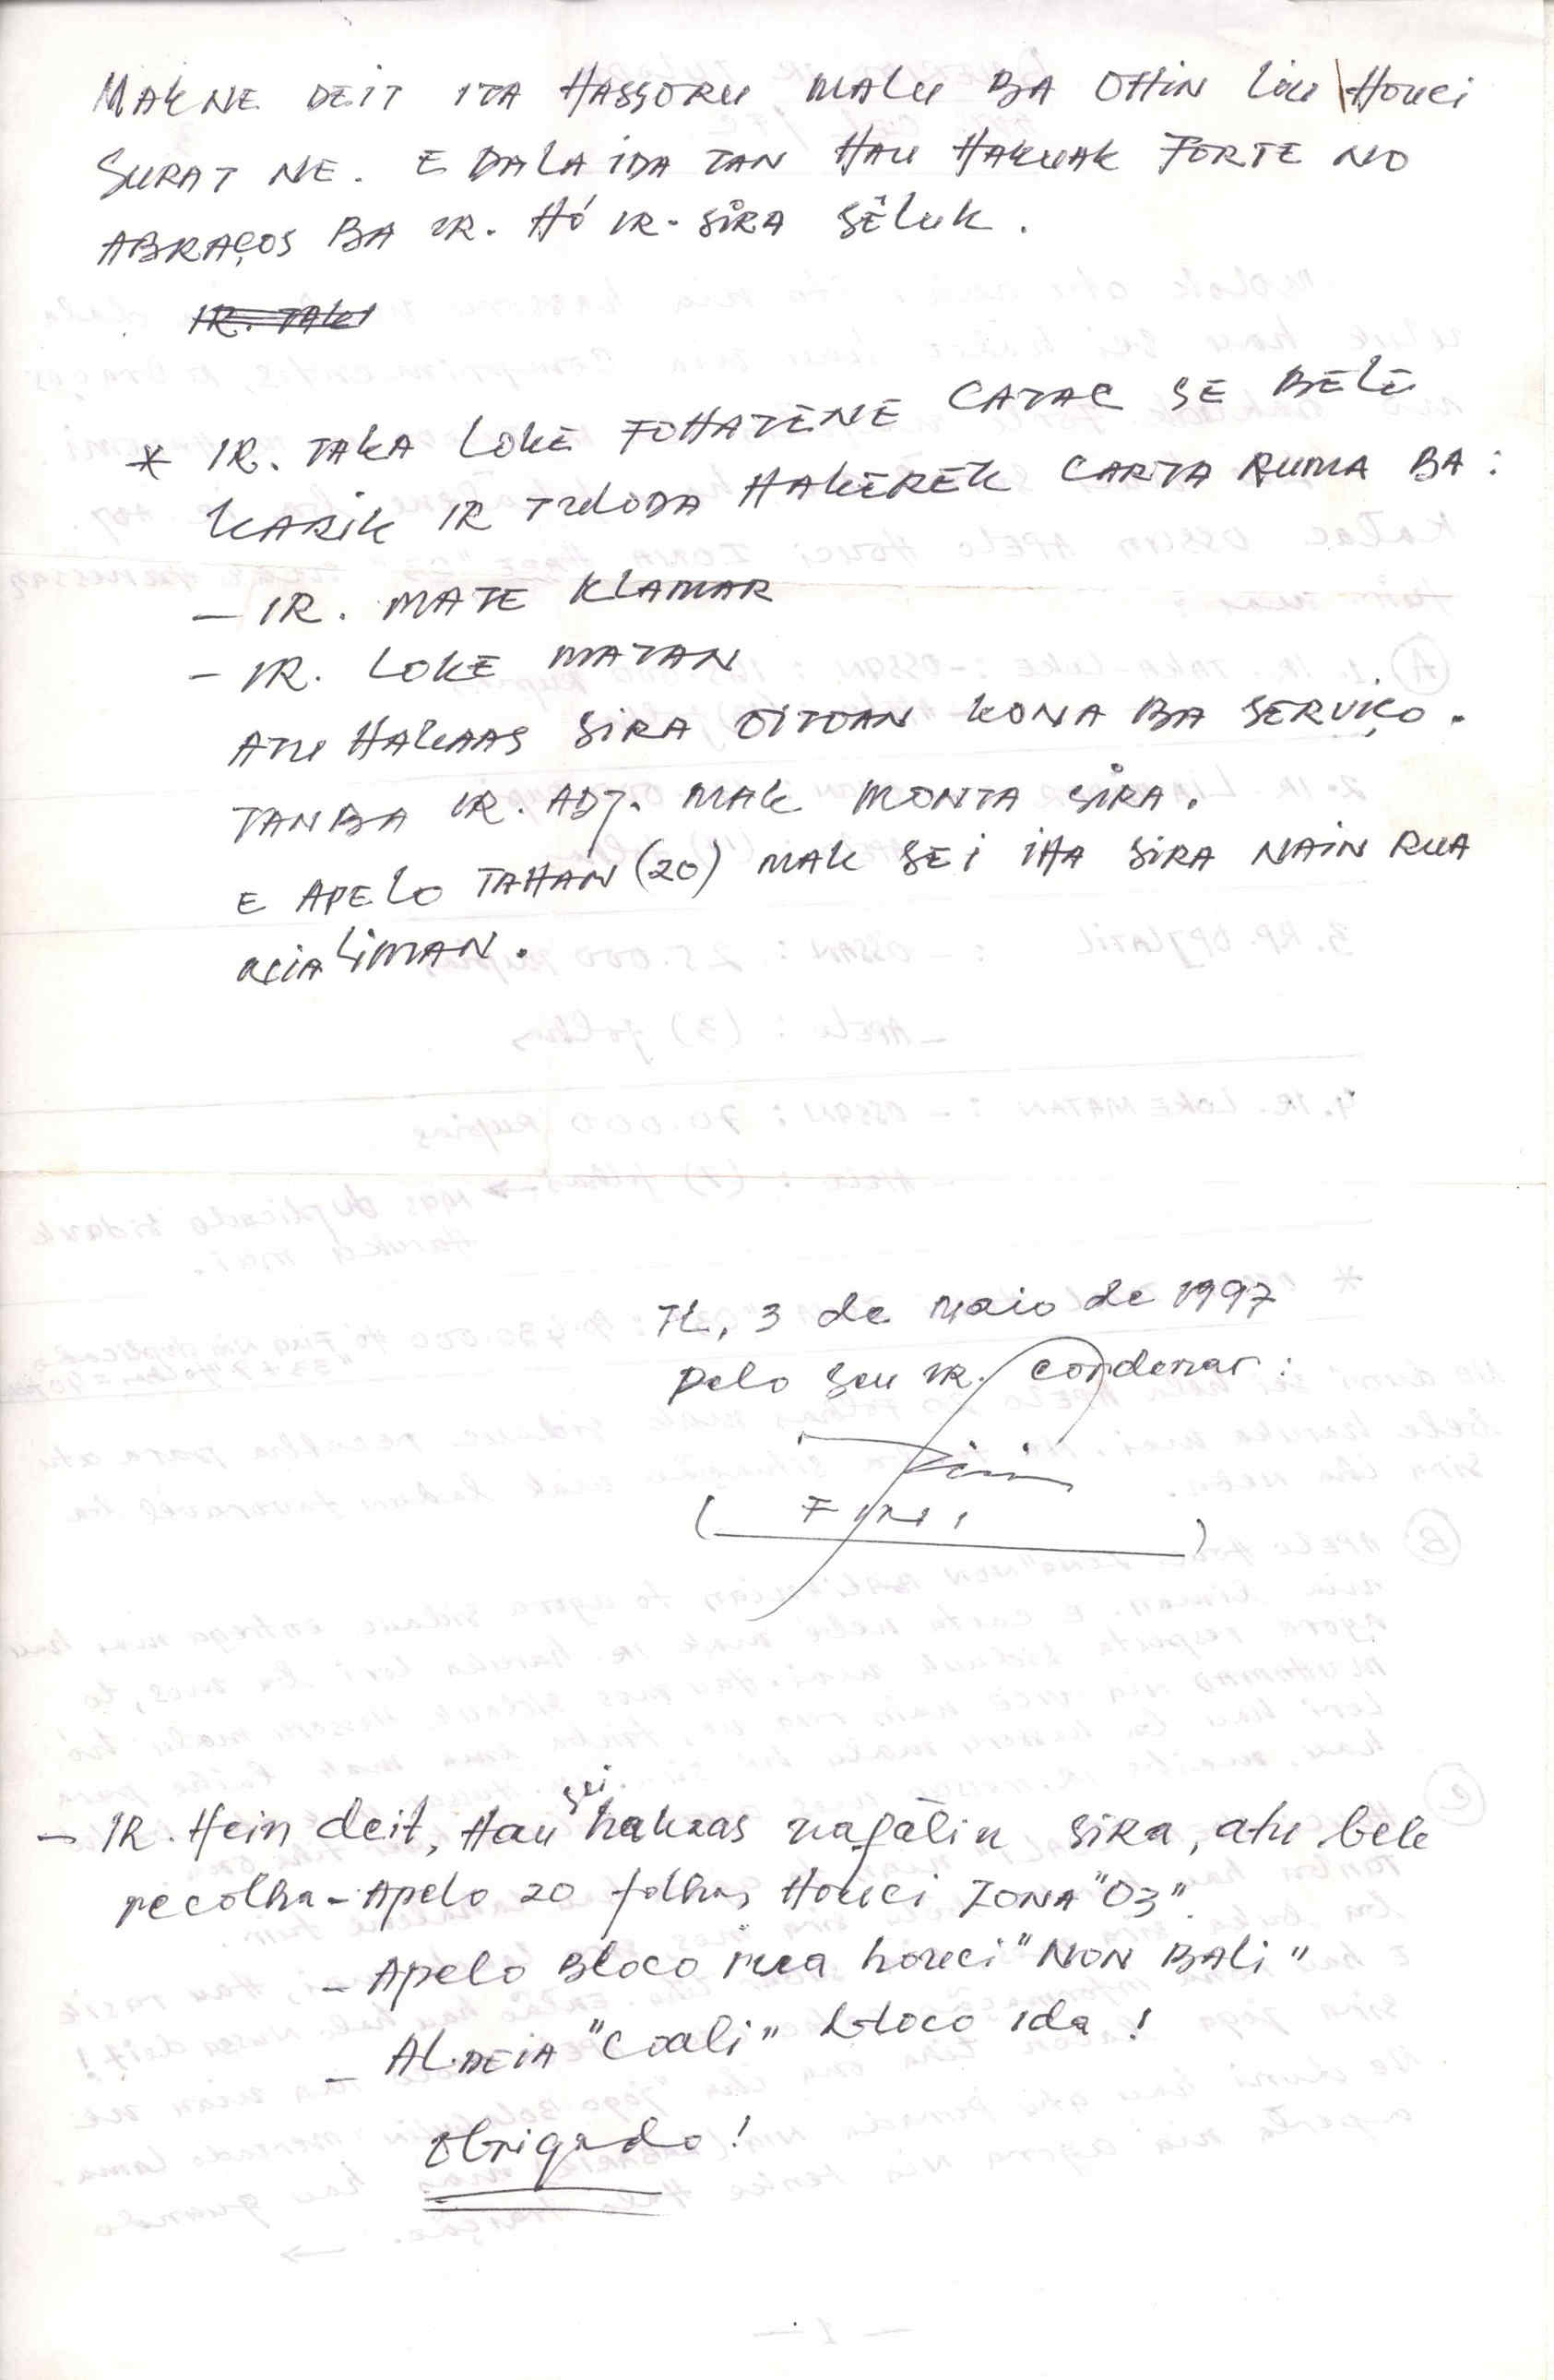 MAKNE DEIT ITA HASSORU MALU BA OHIN LIU HOUCI
SURAT NE. E DALA IDA TAN HAU HAKUAK FORTE NO
ABRAÇOS BA IR. HÓ IR. SIRA SÊLUK.
IR. TAK
* IR. TAKA LOKE FOHATENE CATAC SE BELE
KARIK IR TULODA HAKEREK CARTA RUMA BA:
- IR. MATE KLAMAR
- IR. LOKE MATAN
ATU HAKAAS SIRA OITOAN KONA BA SERVIÇO.
TANBA IR. ADJ. MAK MONTA SIRA.
E APELO TAHAN (20) MAK SEI IHA SIRA NAIN RUA
NIA LIMAN.
3 de maio de 1997
Pelo seu IR.
- IR. Hein deit, Hau sei hakaas nafatin SIRA, atu bele
recolha - Apelo 20 folhas Houci ZONA "03".
- Apelo Bloco rua houci "NON BALI"
- ALDEIA "Coali" bloco ida!
Obrigado!